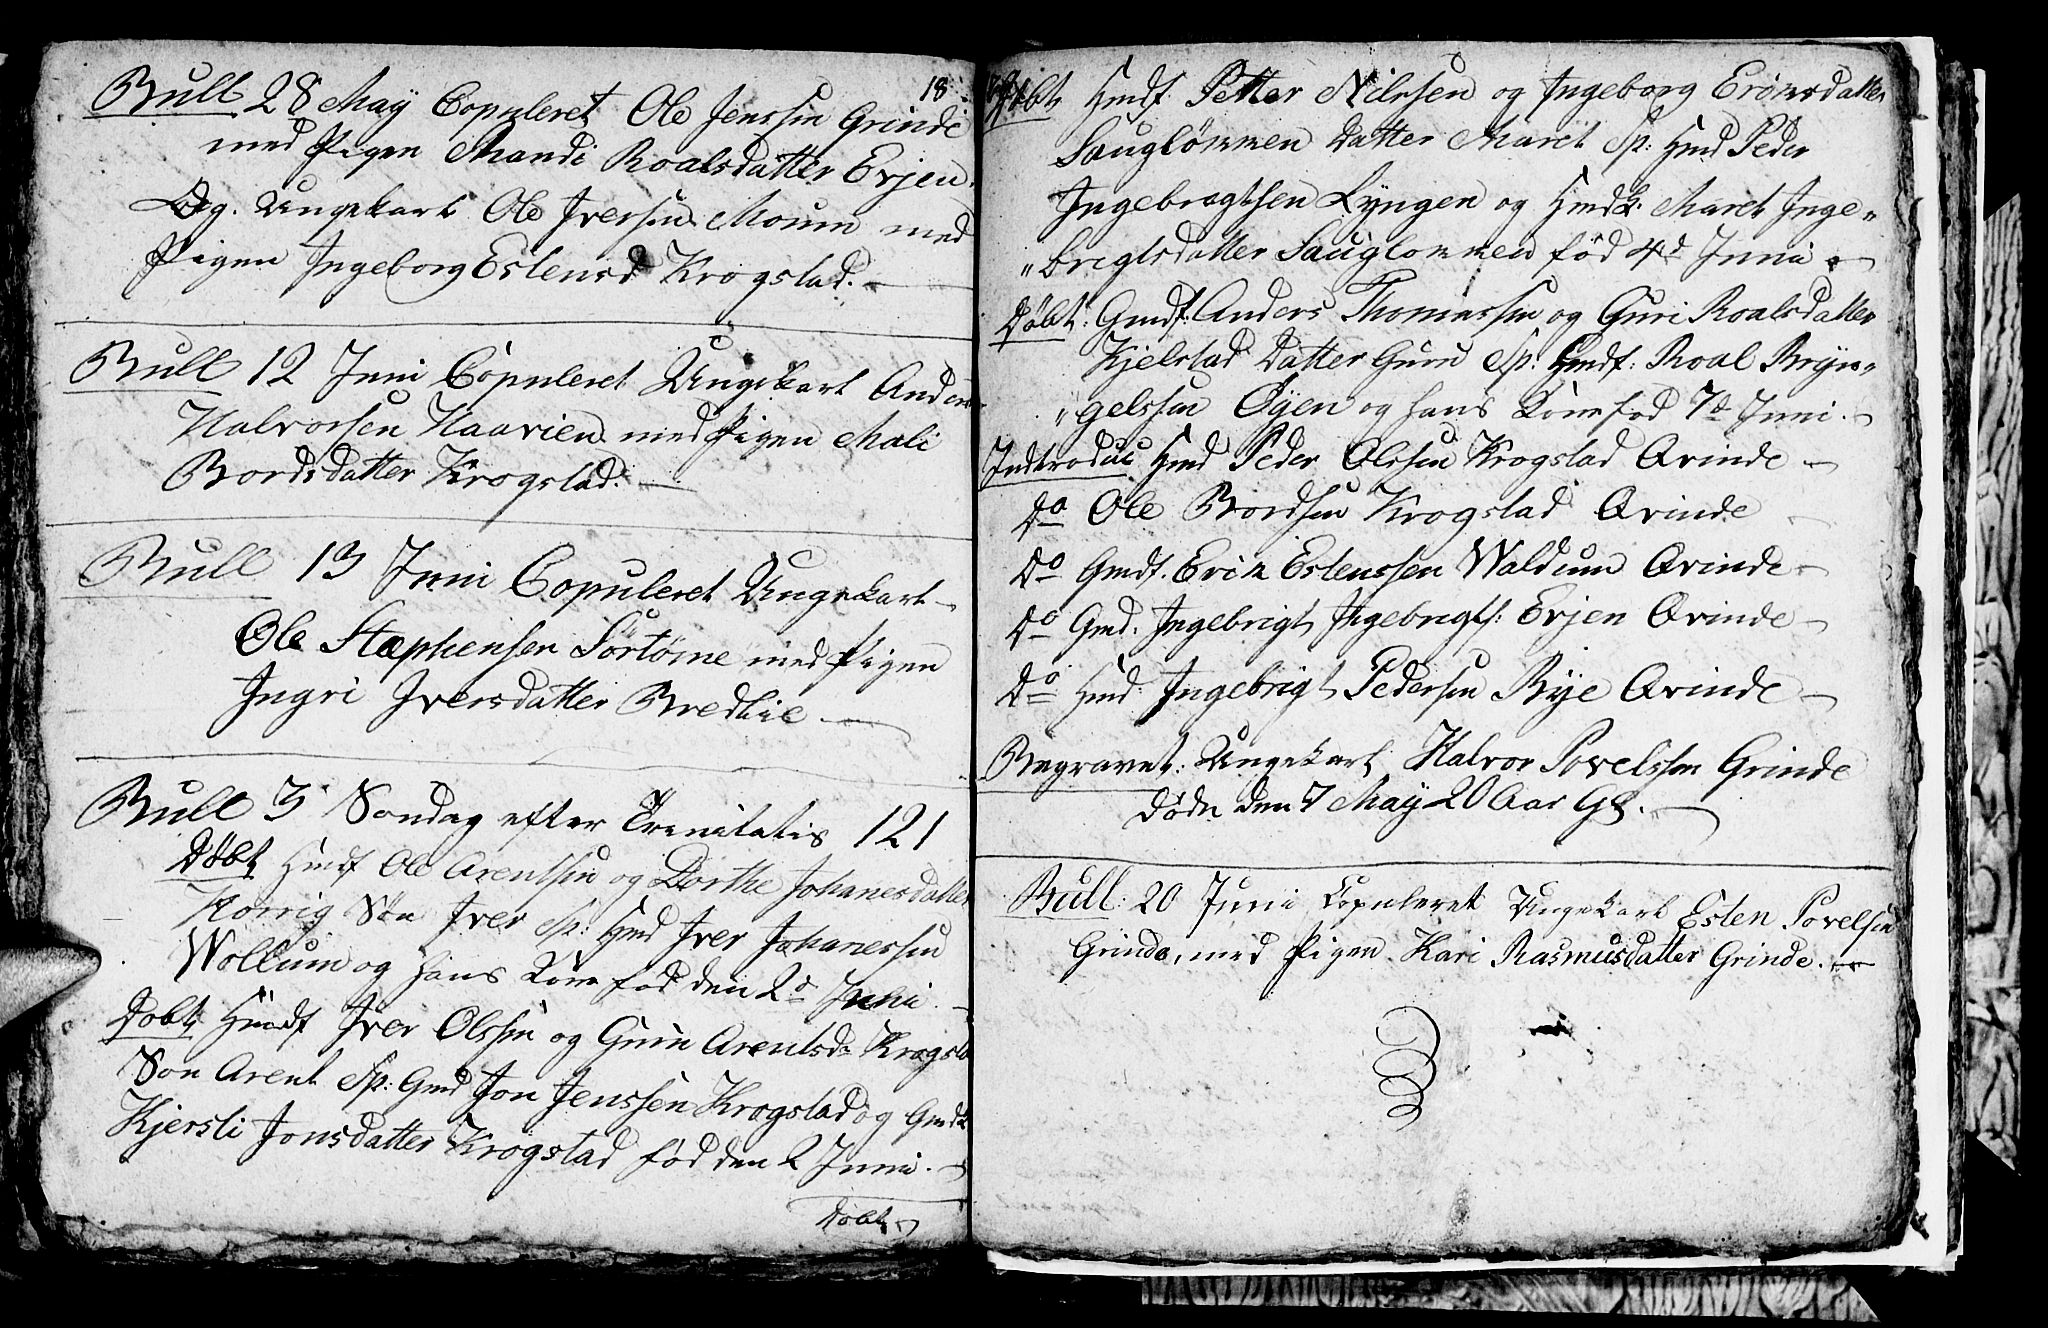 18
Bull 28 May Copuleret Ole Jenssen Grinde
med Pigen Mandi Roalsdatter Evjen.
Og. Ungekarl Ole Iversen Moum med
Pigen Ingeborg Estensd Krogstad.
Bull 12 Juni Copuleret Ungekarl Anders
Halvorsen Haavien med Pigen Mali
Bordsdatter Krogstad.
Bull 13 Juni Copuleret Ungekarl
Ole Stæphensen Sørtøme med Pigen
Ingri Iversdatter Bredlie.
Bull 3 Søndag efter Trenitatis 121
Døbt Hmdf Ole Arentsen og Dorthe Johanesdatter
Horrig Søn Iver Sp: Hmd Iver Johanessen
Wollum og hans Kone fød den 2d Juni.
Døbt Hmdf Iver Olssen og Guru Arentsdr Krogstad
Søn Arent Sp: Gmd Jon Jenssen Krogstad og Gmdk
Kjersti Jonsdatter Krogstad fød den 2 Juni.
Døbt
Døbt Hmdf Petter Nilssen og Ingeborg
Sauglømmen Datter Marit Sp: Hmd Peder
Ingebrogtsen Lyngen og Hmdk: Maret Inge„
„brigtsdatter Sauglommen fød 4d Juni
Døbt: Gmdf: Anders Thomassen og Guri Roalsdatter
Kjelstad Datter Guru Sp: Gmdf: Roal Bryn„
„gelssen Øyen og hans Kone fød 7d Juni.
Indtroduc Hmd Peder Olssen Krogstad Qvinde
Do Ole Bordsen Krogstad Qvinde
Do Gmdf. Erik Estenssen Waldum Qvinde
Do Gmd. Ingebrigt Ingebrigts: Evjen Qvinde
Do Hmd: Ingebrigt Pedersen Bye Qvinde
Begravet: Ungekarl Halvor Povelssen Grinde
døde den 7 May 20 Aar Gl.
Bull: 20 Juni Copuleret Ungekarl Esten Povelsen
Grinde, med Pigen Kari Rasmusdatter Grinde.